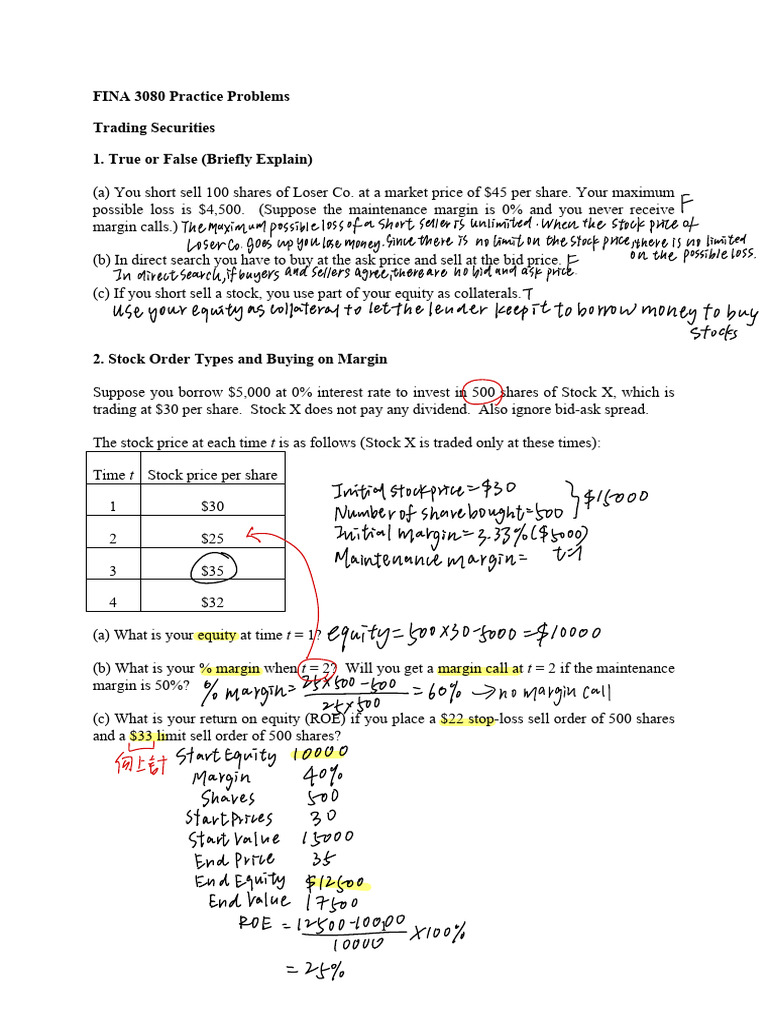 FINA 3080 Practice Problems
Trading Securities
1. True or False (Briefly Explain)
(a) You short sell 100 shares of Loser Co. at a market price of $45 per share. Your maximum
possible loss is $4,500. (Suppose the maintenance margin is 0% and you never receive F
margin calls.) The maximum possible loss of a short seller is unlimited. When the stock price of
Loser Co. goes up you lose money. Since there is no limit on the stock price, there is no limited
on the possible loss.
(b) In direct search you have to buy at the ask price and sell at the bid price. F
In direct search, if buyers and sellers agree, there are no bid and ask price.
(c) If you short sell a stock, you use part of your equity as collaterals. T
Use your equity as collateral to let the lender keep it to borrow money to buy
stocks
2. Stock Order Types and Buying on Margin
Suppose you borrow $5,000 at 0% interest rate to invest in 500 shares of Stock X, which is
trading at $30 per share. Stock X does not pay any dividend. Also ignore bid-ask spread.
The stock price at each time t is as follows (Stock X is traded only at these times):
Time t Stock price per share
1 $30
2 $25
3 $35
4 $32
Initial stock price = $30
Number of share bought = 500 } $15000
Initial margin = 3.33% ($5000)
Maintenance margin = t=1
(a) What is your equity at time t = 1? equity = 500 x 30 - 5000 = $10000
(b) What is your % margin when t = 2? Will you get a margin call at t = 2 if the maintenance
margin is 50%? % margin = 25 x 500 - 500 / 25 x 500 = 60% → no margin call
(c) What is your return on equity (ROE) if you place a $22 stop-loss sell order of 500 shares
and a $33 limit sell order of 500 shares?
向上計
Start Equity 10000
Margin 40%
Shares 500
Start Prices 30
Start Value 15000
End Price 35
End Equity $12500
End Value 17500
ROE = 12500-10000 / 10000 x 100%
= 25%